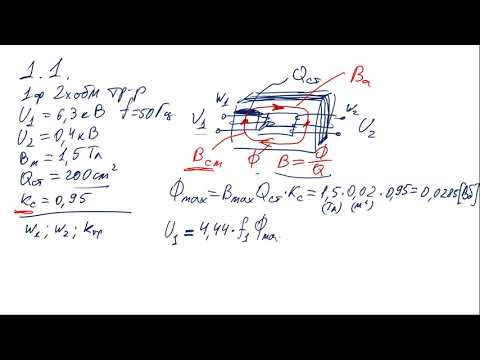 1.1.
1ф 2хобм тр-р
U₁ = 6,3 кВ f=50Гц
U₂ = 0,4 кВ
Bм = 1,5 Тл
Qст = 200 см²
Kс = 0,95
w₁; w₂; Kтр
Qст
Ba
w₁
w₂
U₁
U₂
Bсм
Ф
B = Ф/Q
Фmax = Bmax Qст · Kс = 1,5 · 0,02 · 0,95 = 0,0285 [Вб]
(Тл) (м²)
U₁ = 4,44 · f₁ Фmax